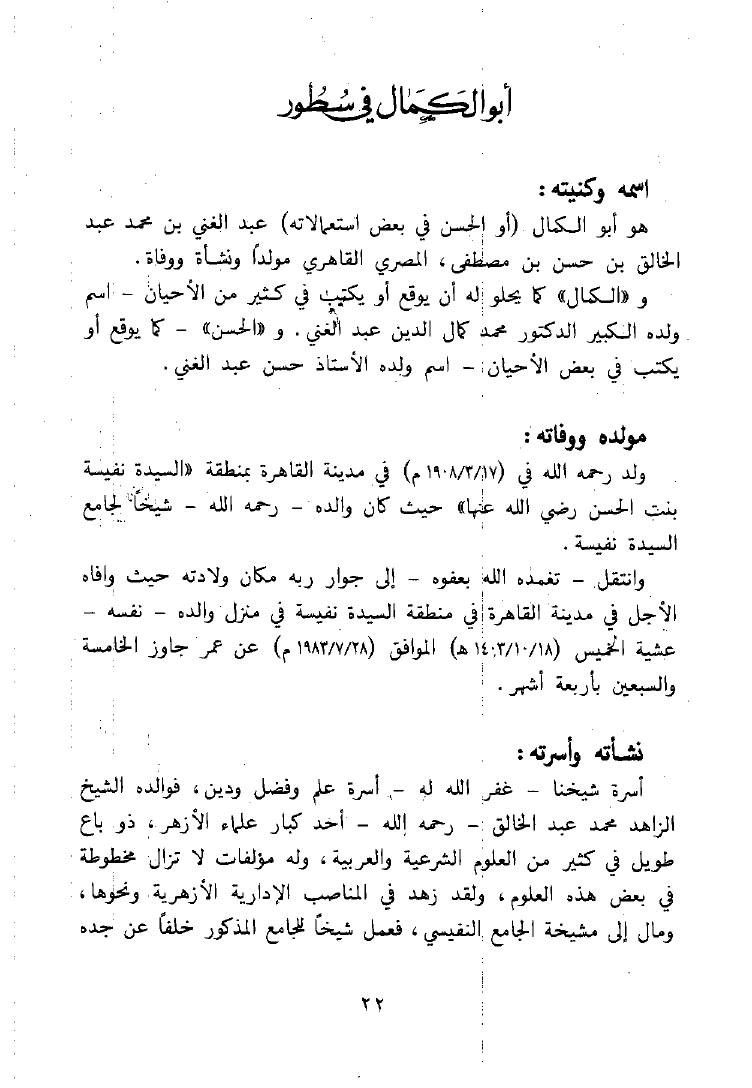 أبو الكمال في سطور
اسمه وكنيته :
هو أبو الكمال (أو الحسن في بعض استعمالاته) عبد الغني بن محمد عبد
الخالق بن حسن بن مصطفى ، المصري القاهري مولداً ونشأة ووفاة .
و «الكمال» كما يحلو له أن يوقع أو يكتب في كثير من الأحيان - اسم
ولده الكبير الدكتور محمد كمال الدين عبد الغني . و «الحسن» - كما يوقع أو
يكتب في بعض الأحيان - اسم ولده الأستاذ حسن عبد الغني .
مولده ووفاته :
ولد رحمه الله في (١٩٠٨/٣/١٧ م) في مدينة القاهرة بمنطقة «السيدة نفيسة
بنت الحسن رضي الله عنها» حيث كان والده - رحمه الله - شيخاً لجامع
السيدة نفيسة .
وانتقل - تغمده الله بعفوه - إلى جوار ربه مكان ولادته حيث وافاه
الأجل في مدينة القاهرة في منطقة السيدة نفيسة في منزل والده - نفسه -
عشية الخميس (١٤٠٣/١٠/١٨ هـ) الموافق (١٩٨٣/٧/٢٨ م) عن عمر جاوز الخامسة
والسبعين بأربعة أشهر .
نشأته وأسرته :
أسرة شيخنا - غفر الله له - أسرة علم وفضل ودين ، فوالده الشيخ
الزاهد محمد عبد الخالق - رحمه الله - أحد كبار علماء الأزهر ، ذو باع
طويل في كثير من العلوم الشرعية والعربية ، وله مؤلفات لا تزال مخطوطة
في بعض هذه العلوم ، ولقد زهد في المناصب الإدارية الأزهرية ونحوها ،
ومال إلى مشيخة الجامع النفيسي ، فعمل شيخاً للجامع المذكور خلفاً عن جده
٢٢